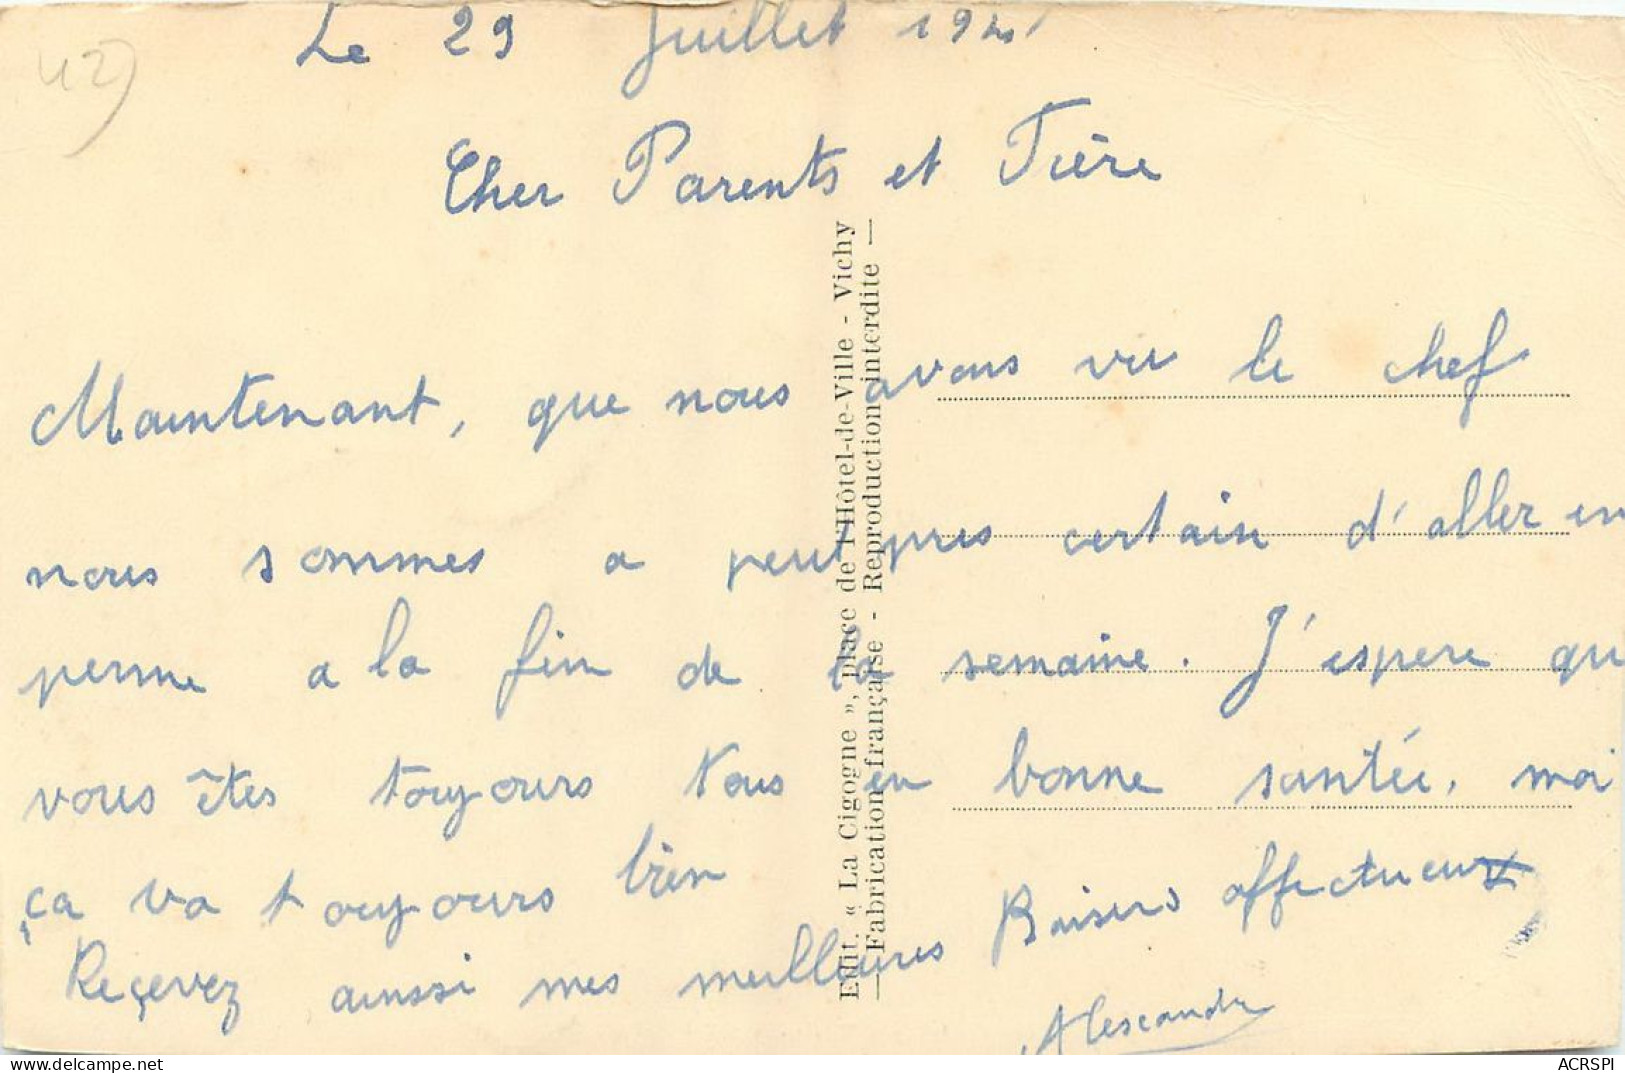 42)
Le 29 Juillet 194
Cher Parents et Frère
Maintenant, que nous avons vu le chef
nous sommes a peut pres certain d'aller en
perme a la fin de la semaine. J'espere qu
vous êtes toujours tous en bonne santée. moi
ça va toujours bien
Reçevez aussi mes meilleures Baisers affectueux
Alescandre
Edit. « La Cigogne », place de l'Hôtel-de-Ville - Vichy
— Fabrication française - Reproduction interdite —
delcampe.net
ACRSPI